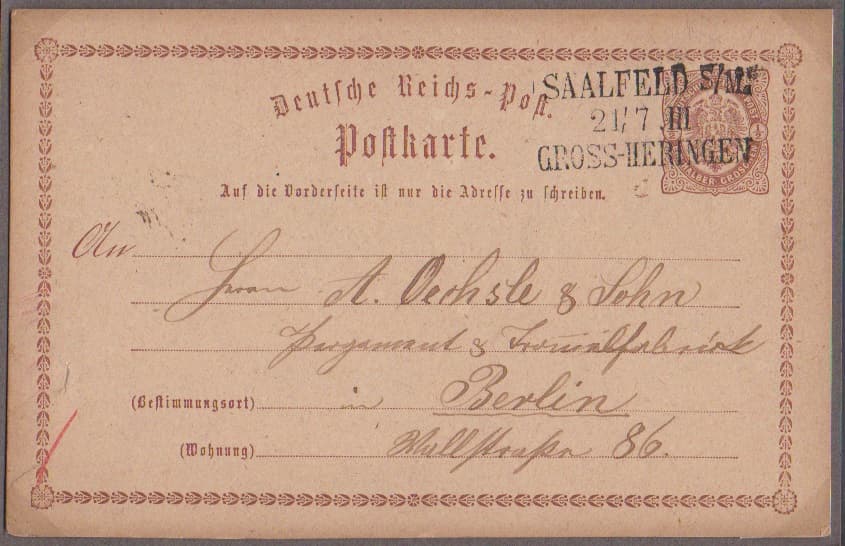 Deutsche Reichs-Post.
SAALFELD S/M
21/7 III
GROSS-HERINGEN
Postkarte.
Auf die Vorderseite ist nur die Adresse zu schreiben.
An
Herrn A. Oechsle & Sohn
Pergament & Trommelfabrick
(Bestimmungsort) in Berlin
(Wohnung) Wallstraße 86.